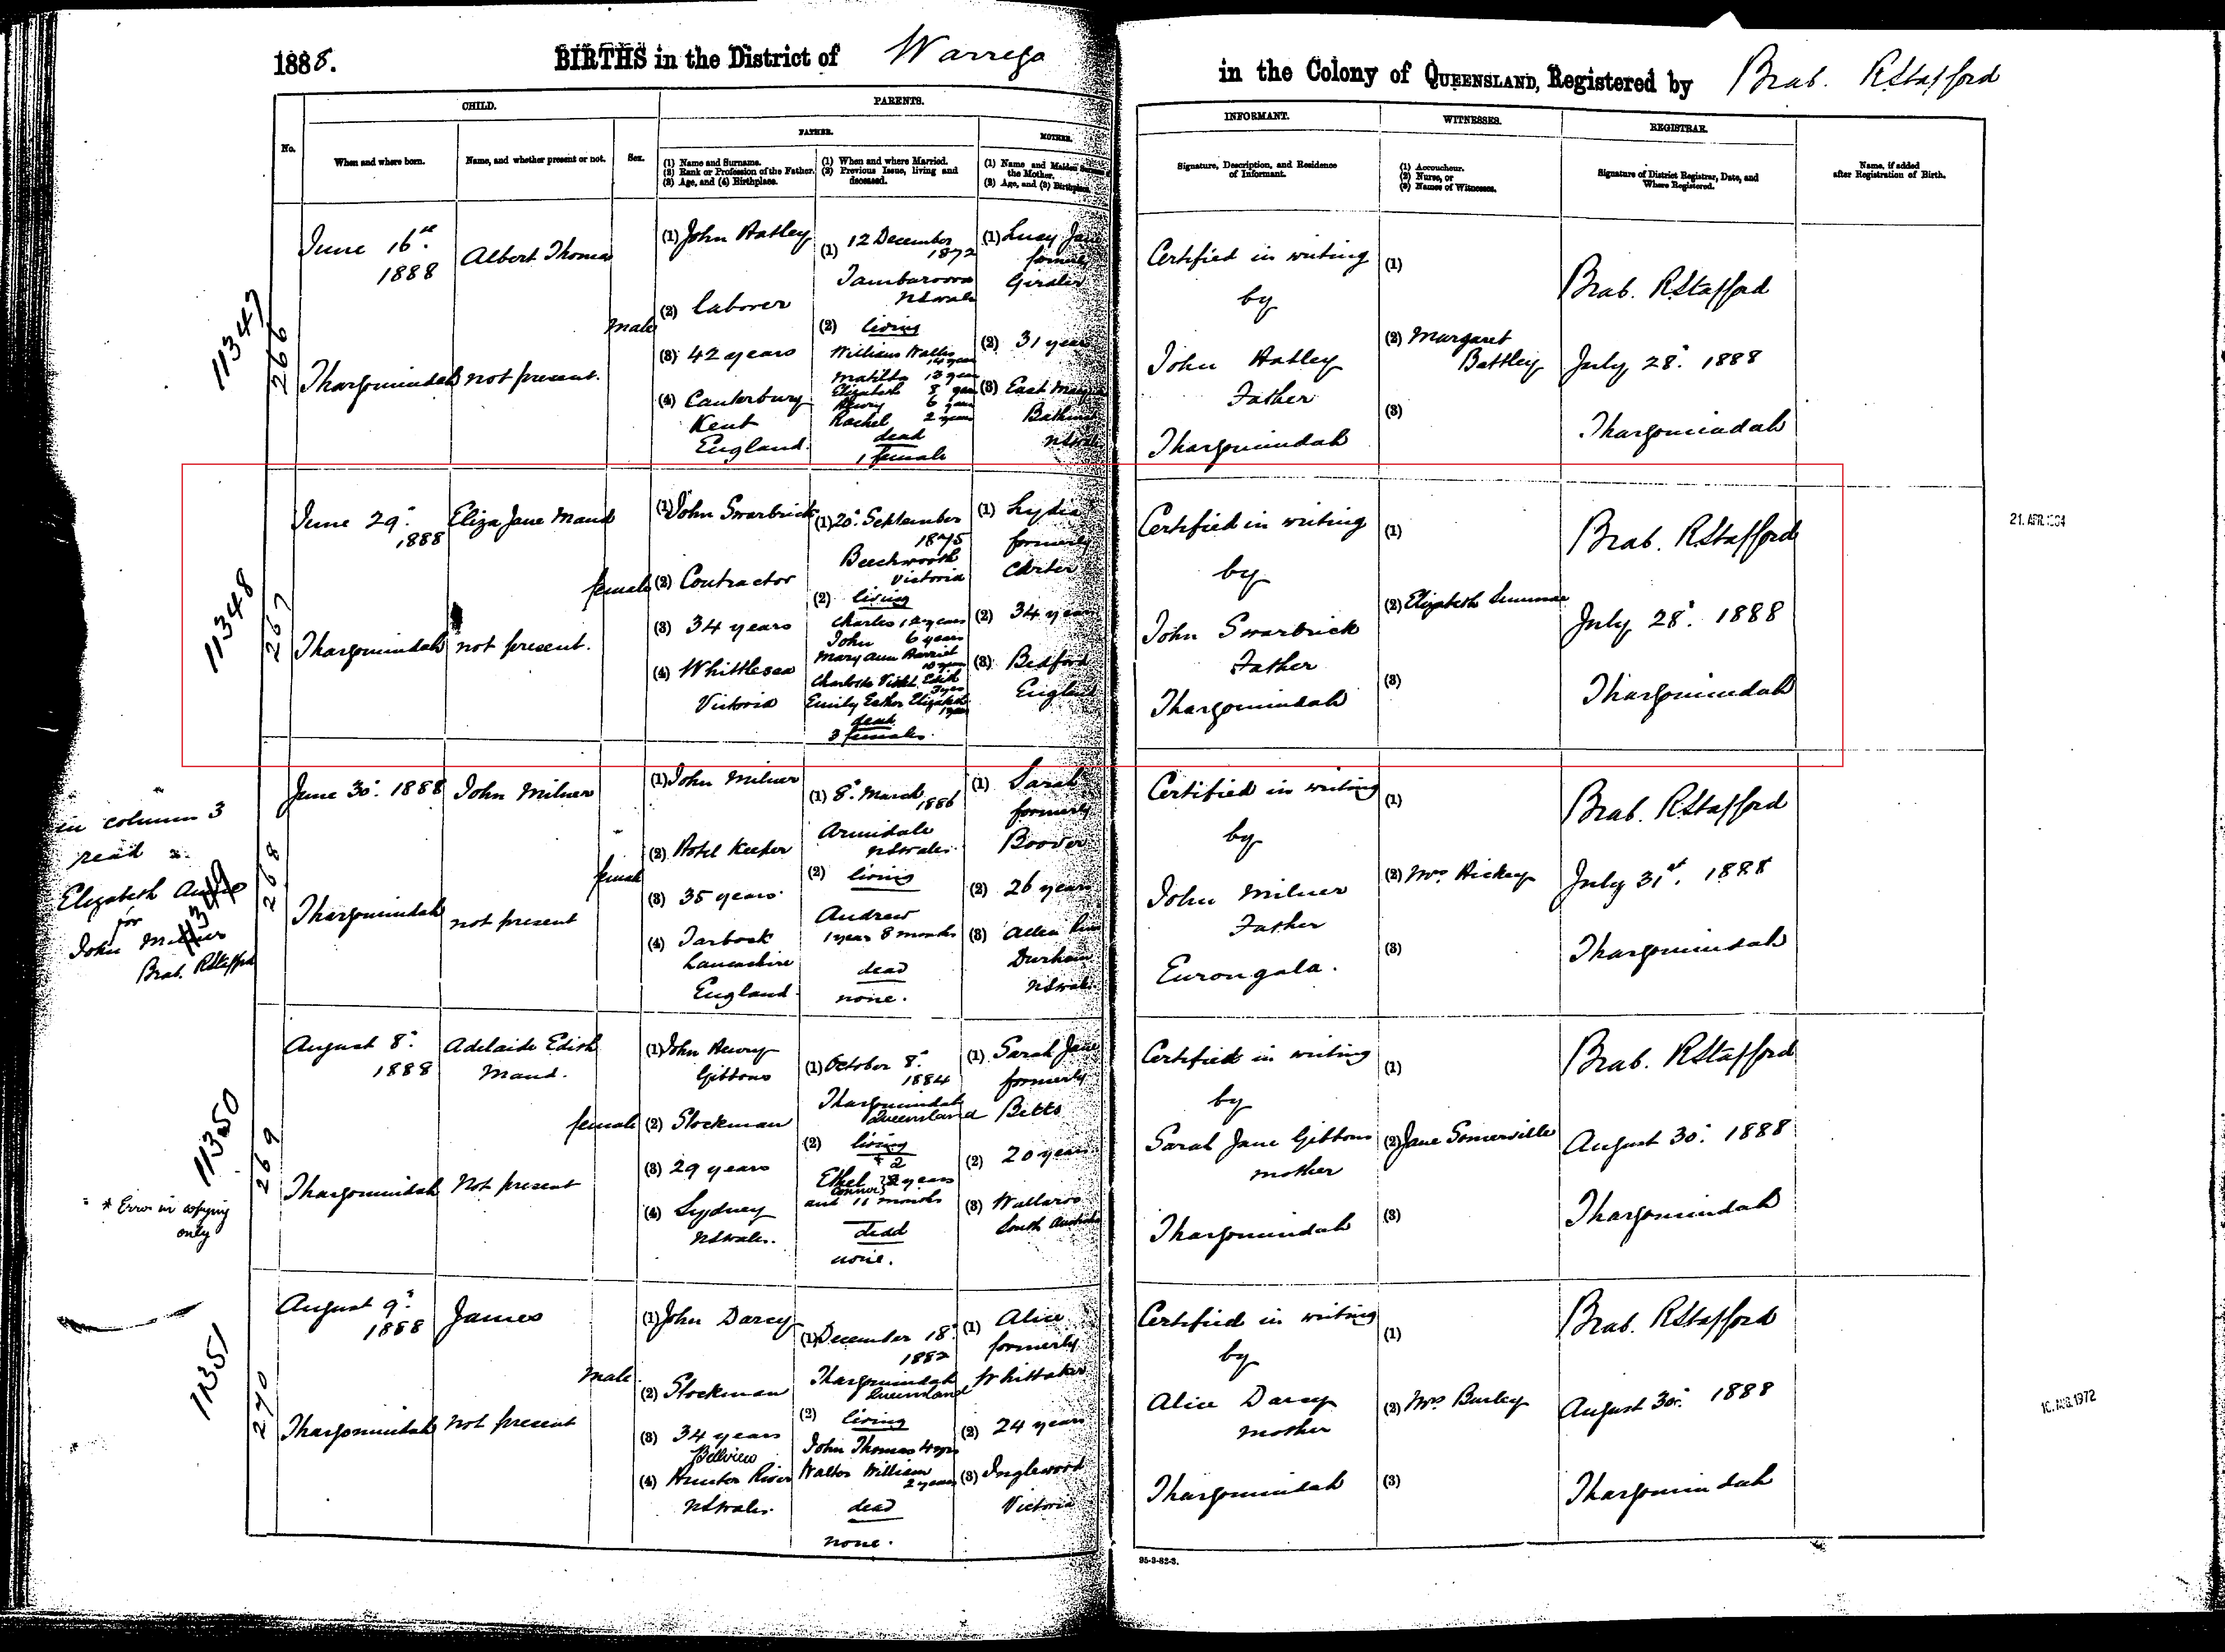 1888.
BIRTHS in the District of Warrego
in the Colony of QUEENSLAND, Registered by Brab. RStafford
CHILD.
PARENTS.
INFORMANT.
WITNESSES.
REGISTRAR.
No.
When and where born.
Name, and whether present or not.
Sex.
FATHER.
(1) Name and Surname.
(2) Rank or Profession of the Father.
(3) Age, and (4) Birthplace.
(1) When and where Married.
(2) Previous Issue, living and
deceased.
MOTHER.
(1) Name and Maiden Surname of
the Mother.
(2) Age, and (3) Birthplace
Signature, Description, and Residence
of Informant.
(1) Accoucheur.
(2) Nurse, or
(3) Names of Witnesses.
Signature of District Registrar, Date, and
Where Registered.
Name, if added
after Registration of Birth.
11347
266
June 16th
1888
Thargomindah
Albert Thomas
not present.
male
(1) John Hatley
(2) laborer
(3) 42 years
(4) Canterbury
Kent
England.
(1) 12 December
1872
Tambaroora
NSWales
(2) living
William Walter
14 years
Matilda 13 years
Elizabeth 8 years
Henry 6 years
Rachel 2 years
dead
1 female
(1) Lucy Jane
formerly
(2) 31 years
(3) East
Bathurst
NSWales
Certified in writing
by
John Hatley
Father
Thargomindah
(1)
(2) Margaret
Battley
(3)
Brab. RStafford
July 28. 1888
Thargomindah
11348
267
June 29.
1888
Thargomindah
Eliza Jane Maud
not present.
female
(1) John Swarbrick
(2) Contractor
(3) 34 years
(4) Whittlesea
Victoria
(1) 20. September
1875
Beechworth
Victoria
(2) living
Charles 12 years
John 6 years
Mary Ann Harriet
10 years
Charlotte Violet Edith
3 yrs
Emily Esther Elizabeth
1 year
dead
3 females.
(1) Lydia
formerly
Carter
(2) 34 years
(3) Bedford
England
Certified in writing
by
John Swarbrick
Father
Thargomindah
(1)
(2) Elizabeth
(3)
Brab. RStafford
July 28. 1888
Thargomindah
21. APR.
in column 3
read
Elizabeth Annie
for
John Milner
Brab. RStafford
11349
268
June 30. 1888
Thargomindah
John Milner
not present
female
(1) John Milner
(2) Hotel Keeper
(3) 35 years
(4) Tarbock
Lancashire
England.
(1) 8. March
1886
Armidale
NSWales
(2) living
Andrew
1 year 8 months
dead
none.
(1) Sarah
formerly
(2) 26 years
(3) Allen River
Durham
NSWales
Certified in writing
by
John Milner
Father
Eurongala.
(1)
(2) Mrs Hickey
(3)
Brab. RStafford
July 31st. 1888
Thargomindah
11350
269
* Error in copying
only
August 8.
1888
Thargomindah
Adelaide Edith
Maud.
Not present
female
(1) John Henry
Gibbons
(2) Stockman
(3) 29 years
(4) Sydney
NSWales.
(1) October 8.
1884
Thargomindah
Queensland
(2) living
* 2
Ethel } 2 years
and 11 months
dead
none.
(1) Sarah Jane
formerly
Betts
(2) 20 years
(3) Wallaroo
South Australia
Certified in writing
by
Sarah Jane Gibbons
mother
Thargomindah
(1)
(2) Jane Somerville
(3)
Brab. RStafford
August 30. 1888
Thargomindah
11351
270
August 9.
1888
Thargomindah
James
not present
male
(1) John Darcy
(2) Stockman
(3) 34 years
Bellview
(4) Hunter River
NSWales.
(1) December 18
1882
Thargomindah
Queensland
(2) living
John Thomas 4 yrs
Walter William
2 years
dead
none.
(1) Alice
formerly
Whittaker
(2) 24 years
(3) Inglewood
Victoria
Certified in writing
by
Alice Darcy
mother
Thargomindah
(1)
(2) Mrs Burley
(3)
Brab. RStafford
August 30. 1888
Thargomindah
1972
95-3-82-3.